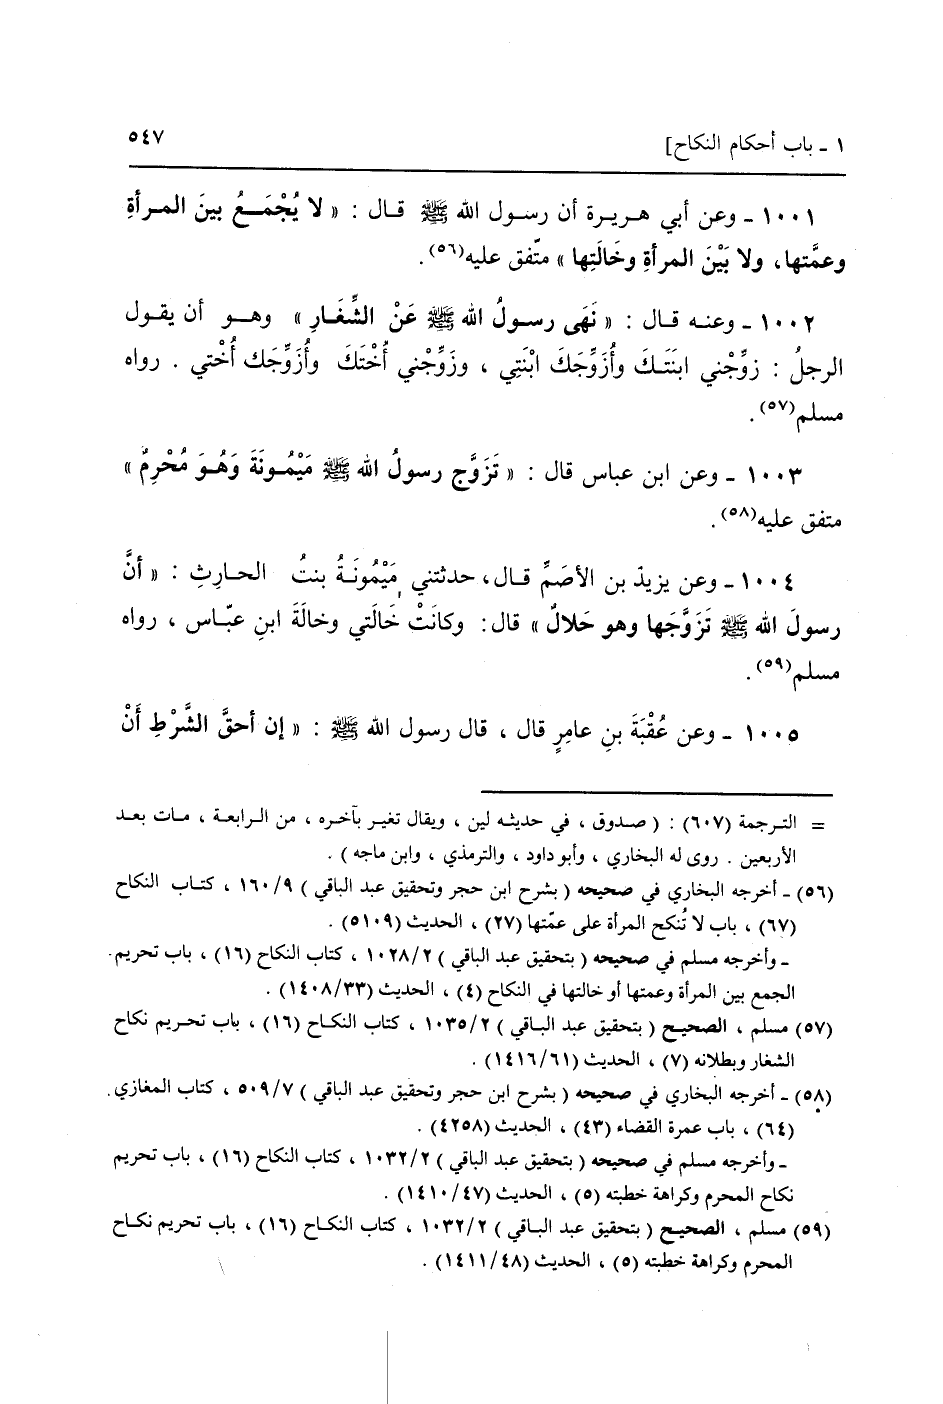 ١ ـ باب أحكام النكاح]
٥٤٧
١٠٠١ ـ وعن أبي هريرة أن رسول الله ﷺ قال : « لا يُجْمَعُ بينَ المرأةِ
وعمَّتها، ولا بَيْنَ المرأةِ وخَالَتِها » متّفق عليه(٥٦) .
١٠٠٢ ـ وعنه قال : « نَهَى رسولُ الله ﷺ عَنْ الشِّغَارِ » وهو أن يقول
الرجلُ : زوِّجْني ابنَتَكَ وأُزَوِّجَكَ ابْنَتِي ، وزَوِّجْني أُخْتَكَ وأُزَوِّجَك أُخْتي . رواه
مسلم(٥٧) .
١٠٠٣ ـ وعن ابن عباس قال : « تَزَوَّج رسولُ الله ﷺ مَيْمُونَةَ وَهُوَ مُحْرِمٌ »
متفق عليه(٥٨) .
١٠٠٤ ـ وعن يزيدَ بن الأصَمِّ قال، حدثتني مَيْمُونَةُ بنتُ الحارِثِ : « أنَّ
رسولَ الله ﷺ تَزَوَّجَها وهو حَلالٌ » قال: وكانَتْ خَالَتي وخالَةَ ابنِ عبّاس ، رواه
مسلم(٥٩) .
١٠٠٥ ـ وعن عُقْبَةَ بنِ عامِرٍ قال ، قال رسول الله ﷺ : « إن أحقَّ الشَّرْطِ أَنْ
= الترجمة (٦٠٧) : ( صدوق ، في حديثه لين ، ويقال تغير بآخره ، من الرابعة ، مات بعد
الأربعين . روى له البخاري ، وأبو داود ، والترمذي ، وابن ماجه ) .
(٥٦) ـ أخرجه البخاري في صحيحه ( بشرح ابن حجر وتحقيق عبد الباقي ) ١٦٠/٩ ، كتاب النكاح
(٦٧) ، باب لا تُنكح المرأة على عمّتها (٢٧) ، الحديث (٥١٠٩) .
ـ وأخرجه مسلم في صحيحه ( بتحقيق عبد الباقي ) ١٠٢٨/٢ ، كتاب النكاح (١٦) ، باب تحريم
الجمع بين المرأة وعمتها أو خالتها في النكاح (٤) ، الحديث (١٤٠٨/٣٣) .
(٥٧) مسلم ، الصحيح ( بتحقيق عبد الباقي ) ١٠٣٥/٢ ، كتاب النكاح (١٦) ، باب تحريم نكاح
الشغار وبطلانه (٧) ، الحديث (١٤١٦/٦١) .
(٥٨) ـ أخرجه البخاري في صحيحه ( بشرح ابن حجر وتحقيق عبد الباقي ) ٥٠٩/٧ ، كتاب المغازي
(٦٤) ، باب عمرة القضاء (٤٣) ، الحديث (٤٢٥٨) .
ـ وأخرجه مسلم في صحيحه ( بتحقيق عبد الباقي ) ١٠٣٢/٢ ، كتاب النكاح (١٦) ، باب تحريم
نكاح المحرم وكراهة خطبته (٥) ، الحديث (١٤١٠/٤٧) .
(٥٩) مسلم ، الصحيح ( بتحقيق عبد الباقي ) ١٠٣٢/٢ ، كتاب النكاح (١٦) ، باب تحريم نكاح
المحرم وكراهة خطبته (٥) ، الحديث (١٤١١/٤٨) .